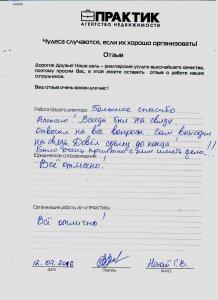 ПРАКТИК
АГЕНТСТВО НЕДВИЖИМОСТИ
Чудеса случаются, если их хорошо организовать!
Отзыв
Дорогие Друзья! Наша цель – риэлтерские услуги высочайшего качества,
поэтому просим Вас, в этой анкете оставить отзыв о работе наших
сотрудников.
Ваш отзыв очень важен для нас!
Работа Вашего риэлтора: Большое спасибо
Алексею! Всегда был на связи
отвечал на все вопросы. Сам выходил
на связь. Довёл сделку до конца!
Было очень приятно с ним иметь дело!!!
Юридическое сопровождение:
Всё отлично!
Организация работы АН «ПРАКТИК»:
Всё отлично!
12.07.2018
С.В.
Дата Подпись ФИО